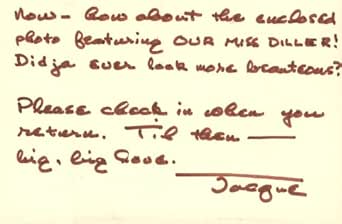 Now - how about the enclosed
photo featuring OUR MISS DILLER!
Didja ever look more beauteous?
Please check in when you
return. Til then —
big, big love.
Jacque